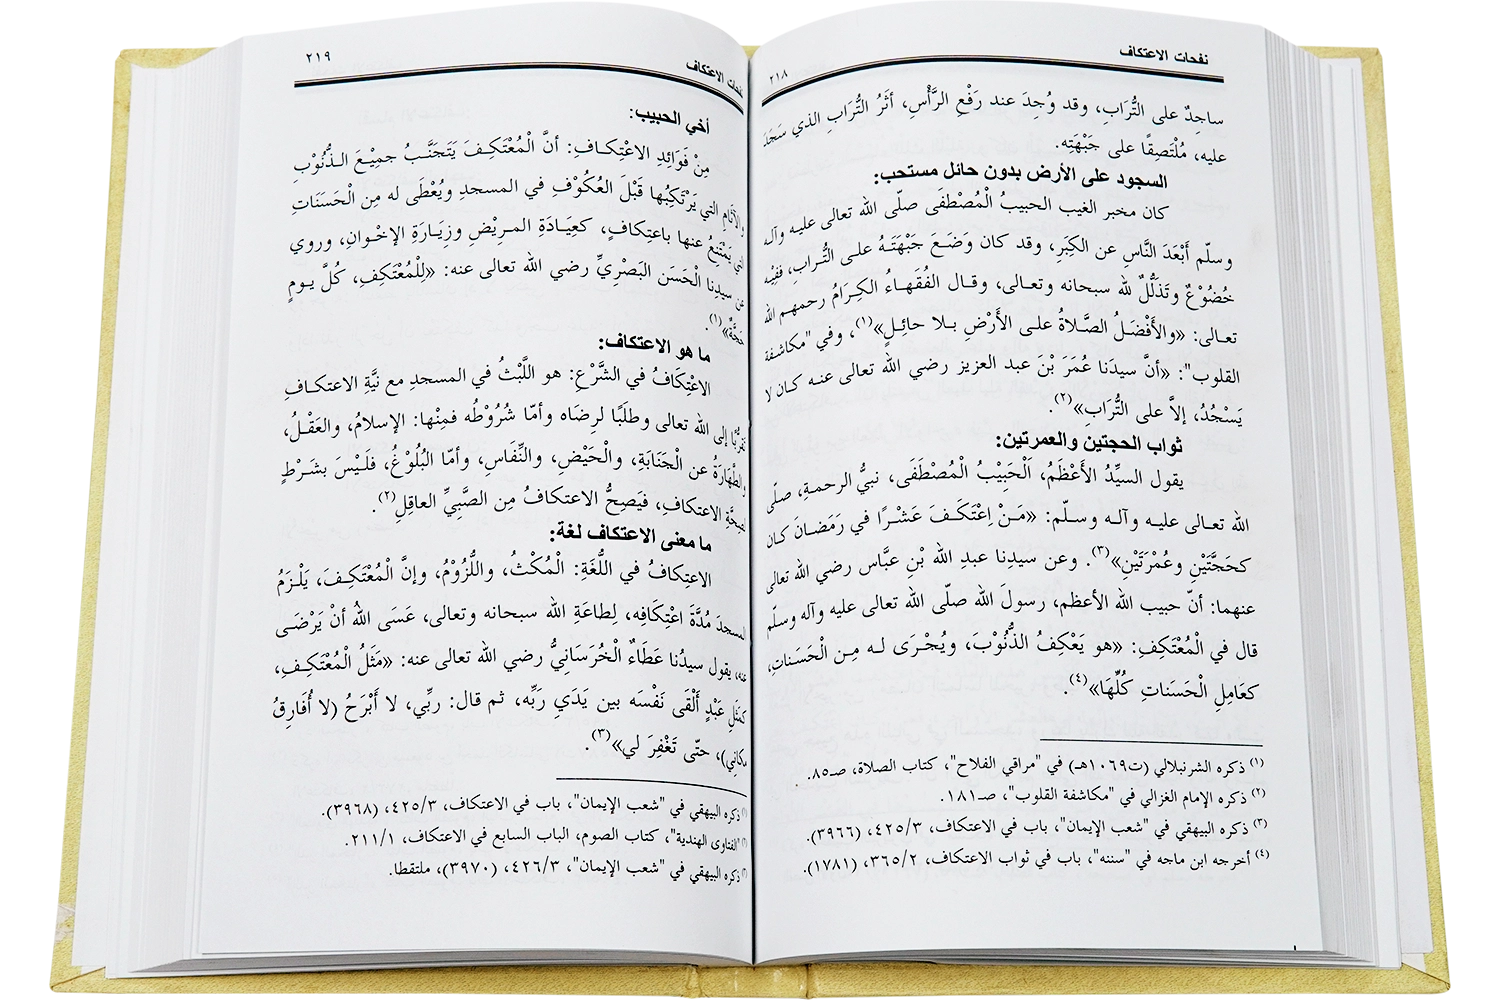 نفحات الاعتكاف
٢١٨
ساجِدٌ على التُّرَابِ، وقد وُجِدَ عند رَفْعِ الرَّأْسِ، أثَرُ التُّرَابِ الذي سَجَدَ
عليه، مُلْتَصِقًا على جَبْهَتِه.
السجود على الأرض بدون حائل مستحب:
كان مخبر الغيب الحبيبُ الْمُصْطَفَى صلّى الله تعالى عليه وآله
وسلّم أَبْعَدَ النَّاسِ عن الكِبَرِ، وقد كان وَضَعَ جَبْهَتَهُ على التُّرابِ، فَفِيْه
خُضُوْعٌ وتَذَلُّلٌ لله سبحانه وتعالى، وقال الفُقَهاءُ الكِرَامُ رحمهم الله
تعالى: «والأَفْضَلُ الصَّلاةُ على الأَرْضِ بلا حائِلٍ»(١)، وفي "مكاشفة
القلوب": «أنَّ سيدَنا عُمَرَ بْنَ عبد العزيز رضي الله تعالى عنه كان لا
يَسْجُدُ، إلاَّ على التُّرَابِ»(٢).
ثواب الحجتين والعمرتين:
يقول السيِّدُ الأَعْظَمُ، اَلْحَبِيْبُ الْمُصْطَفَى، نبيُّ الرحمةِ، صلّى
الله تعالى عليه وآله وسلّم: «مَنْ اِعْتَكَفَ عَشْرًا في رَمَضَانَ كان
كحَجَّتَيْنِ وعُمْرَتَيْنِ»(٣). وعن سيدِنا عبدِ الله بْنِ عبَّاس رضي الله تعالى
عنهما: أنّ حبيب الله الأعظم، رسولَ الله صلّى الله تعالى عليه وآله وسلّم
قال في الْمُعْتَكِفِ: «هو يَعْكِفُ الذُّنُوْبَ، ويُجْرَى له مِن الْحَسَناتِ،
كعَامِلِ الْحَسَناتِ كُلِّهَا»(٤).
(١) ذكره الشرنبلالي (ت١٠٦٩هـ) في "مراقي الفلاح"، كتاب الصلاة، صـ٨٥.
(٢) ذكره الإمام الغزالي في "مكاشفة القلوب"، صـ١٨١.
(٣) ذكره البيهقي في "شعب الإيمان"، باب في الاعتكاف، ٤٢٥/٣، (٣٩٦٦).
(٤) أخرجه ابن ماجه في "سننه"، باب في ثواب الاعتكاف، ٣٦٥/٢، (١٧٨١).
نفحات الاعتكاف
٢١٩
أخي الحبيب:
مِنْ فَوَائِدِ الاعْتِكافِ: أنَّ الْمُعْتَكِفَ يَتَجَنَّبُ جميْعَ الذُّنُوْبِ
والآثَامِ التي يَرْتَكِبُها قَبْلَ العُكُوْفِ في المسجدِ ويُعْطَى له مِن الْحَسَنَاتِ
التي يَمْتَنِعُ عنها باعتِكافٍ، كعِيَادَةِ المرِيْضِ وزِيَارَةِ الإخْوانِ، وروي
عن سيدِنا الْحَسَنِ البَصْرِيِّ رضي الله تعالى عنه: «لِلْمُعْتَكِفِ، كُلَّ يومٍ
حَجَّةٌ»(١).
ما هو الاعتكاف:
الاعْتِكَافُ في الشَّرْعِ: هو اللَّبْثُ في المسجدِ مع نيَّةِ الاعتكافِ
تَقرُّبًا إلى الله تعالى وطلَبًا لرِضَاه وأمّا شُرُوْطُه فمِنْها: الإسلامُ، والعَقْلُ،
والطّهَارَةُ عن الْجَنَابَةِ، والْحَيْضِ، والنِّفَاسِ، وأمّا البُلُوْغُ، فلَيْسَ بشَرْطٍ
لصِحَّةِ الاعتكافِ، فيَصِحُّ الاعتكافُ مِن الصَّبِيِّ العاقِلِ(٢).
ما معنى الاعتكاف لغة:
الاعتِكافُ في اللُّغَةِ: الْمُكْثُ، واللُّزُوْمُ، وإنَّ الْمُعْتَكِفَ، يَلْزَمُ
المسجدَ مُدَّةَ اعْتِكَافِه، لِطاعَةِ الله سبحانه وتعالى، عَسَى اللهُ أنْ يَرْضَى
عنه، يقول سيدُنا عَطَاءٌ الْخُرَسَانِيُّ رضي الله تعالى عنه: «مَثَلُ الْمُعْتَكِفِ،
كمَثَلِ عَبْدٍ أَلْقَى نَفْسَه بين يَدَي رَبِّه، ثم قال: ربِّي، لا أَبْرَحُ (لا أُفَارِقُ
مكانِي)، حتّى تَغْفِرَ لي»(٣).
(١) ذكره البيهقي في "شعب الإيمان"، باب في الاعتكاف، ٤٢٥/٣، (٣٩٦٨).
(٢) "الفتاوى الهندية"، كتاب الصوم، الباب السابع في الاعتكاف، ٢١١/١.
(٣) ذكره البيهقي في "شعب الإيمان"، ٤٢٦/٣، (٣٩٧٠)، ملتقطا.